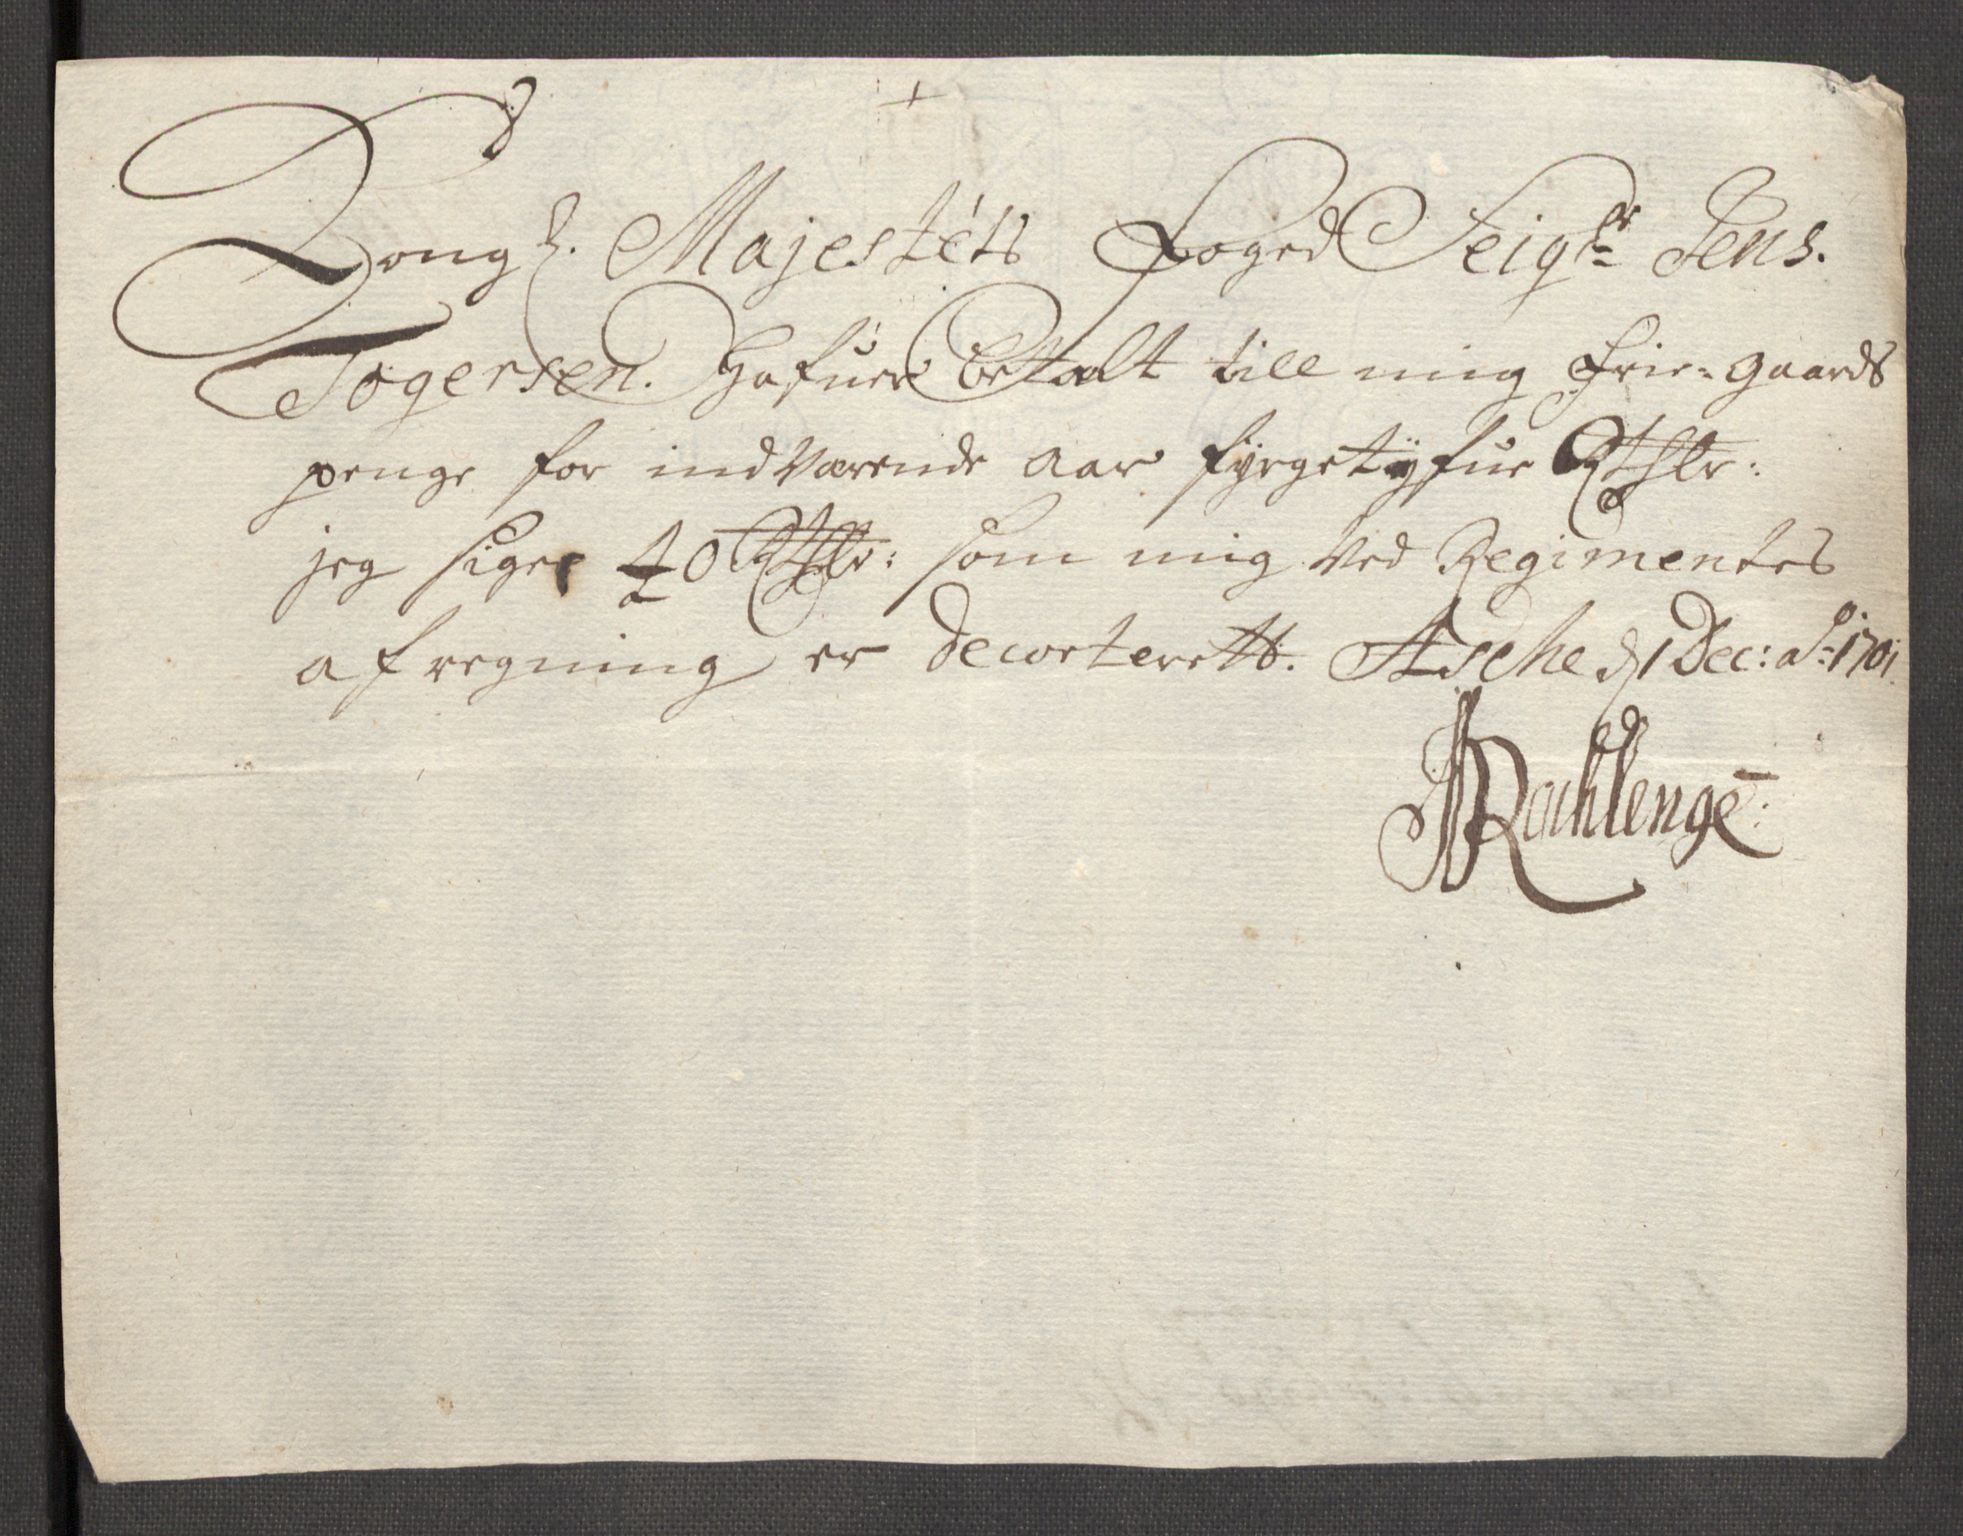 Kongl. Majestéts Foged Seigr Jens.
Togersen. Hafuer Betalt till mig frie=gaards
penge for indVærende Aar fyrgetyfue Rthlr:
jeg siger 40 Rthlr: som mig Ved Regimentes
afregning er decorterett. Asche d 1 Dec: ao: 1701.